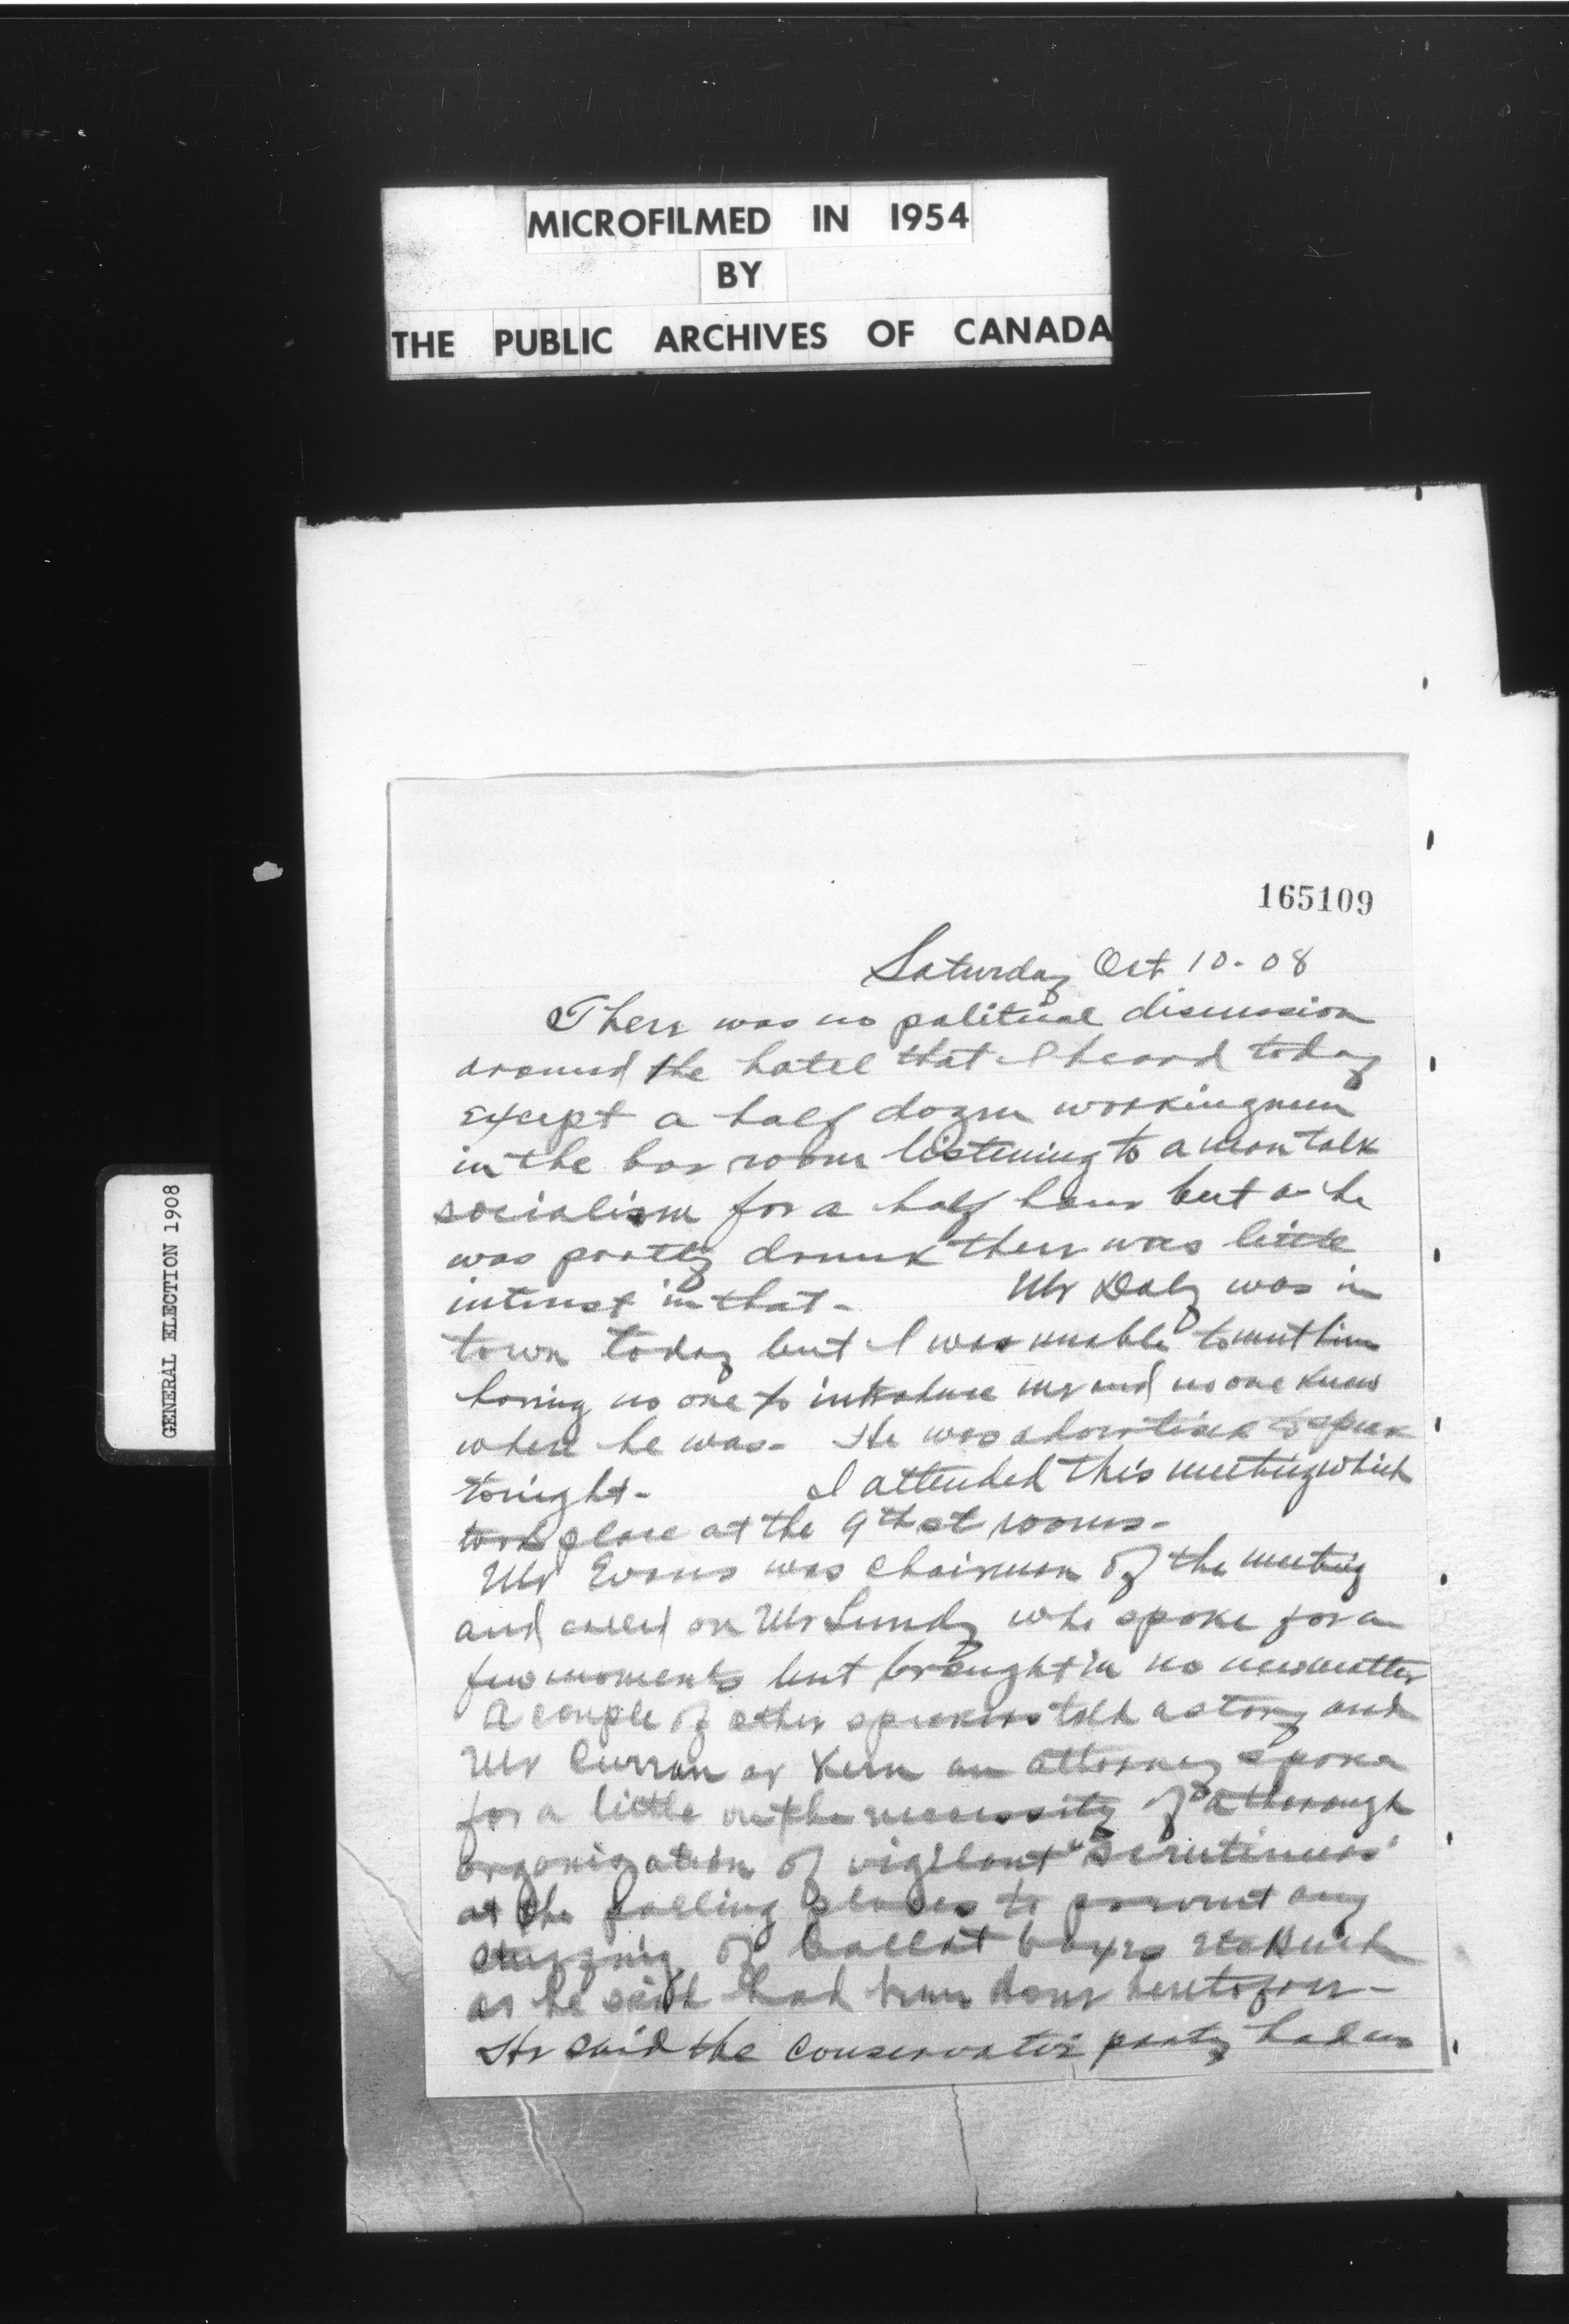 MICROFILMED IN 1954
BY
THE PUBLIC ARCHIVES OF CANADA
GENERAL ELECTION 1908
165109
Saturday Oct 10-08
There was no political discussion
around the hotel that I heard today
except a half dozen workingmen
in the bar room listening to a man talk
socialism for a half hour but as he
was partly drunk there was little
interest in that-
Mr Daly was in
town today but I was unable to meet him
having no one to introduce me and no one knew
where he was- He was advertised to speak
tonight- I attended this meeting which
took place at the 9th st rooms-
Mr Evans was chairman of the meeting
and called on Mr Lundy who spoke for a
few moments but brought in no new matter
A couple of other speakers told a story and
Mr Curran or Kern an attorney spoke
for a little on the necessity of a thorough
organization of vigilant "scrutineers"
at the polling places to prevent any
stuffing of ballot boxes etc such
as he said had been done heretofore-
He said the conservative party had an